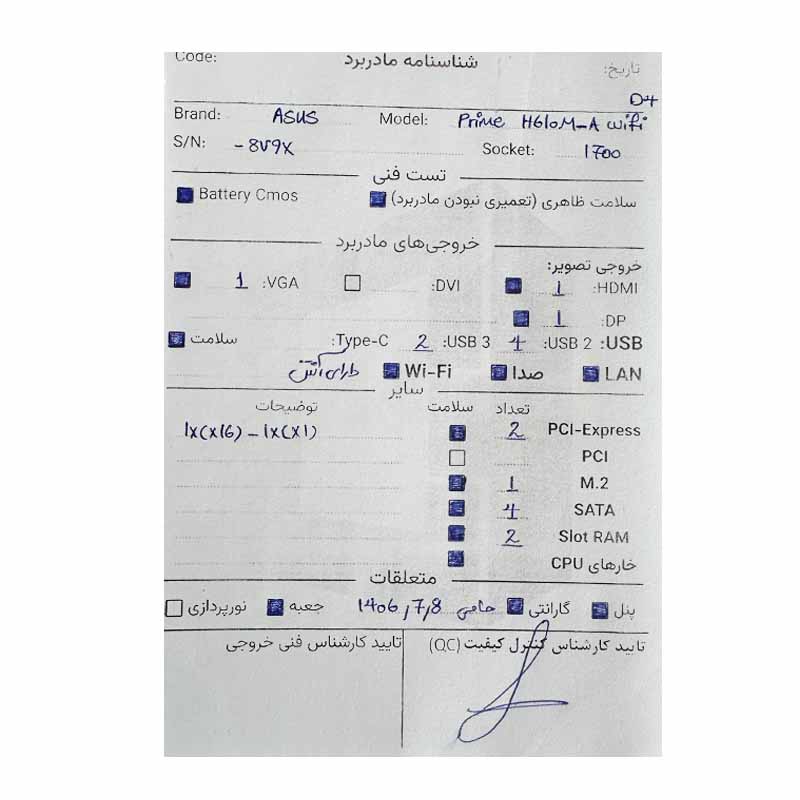 Code: شناسنامه مادربرد تاریخ:
D4
Brand: ASUS Model: Prime H610M-A wifi
S/N: -8V9X Socket: 1700
تست فنی
سلامت ظاهری (تعمیری نبودن مادربرد) Battery Cmos
خروجی‌های مادربرد
خروجی تصویر:
HDMI: 1 DVI: VGA: 1
DP: 1
USB: USB 2: 4 USB 3: 2 Type-C: سلامت
LAN صدا Wi-Fi دارای آنتن
سایر
تعداد سلامت توضیحات
PCI-Express 2 1x(x16) - 1x(x1)
PCI
M.2 1
SATA 4
Slot RAM 2
خارهای CPU
متعلقات
پنل گارانتی حامی 1406,7,8 جعبه نورپردازی
تایید کارشناس کنترل کیفیت (QC) تایید کارشناس فنی خروجی